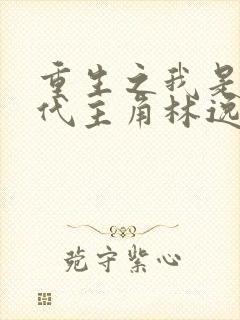 重生之我是
代主角林远
苑守紫心